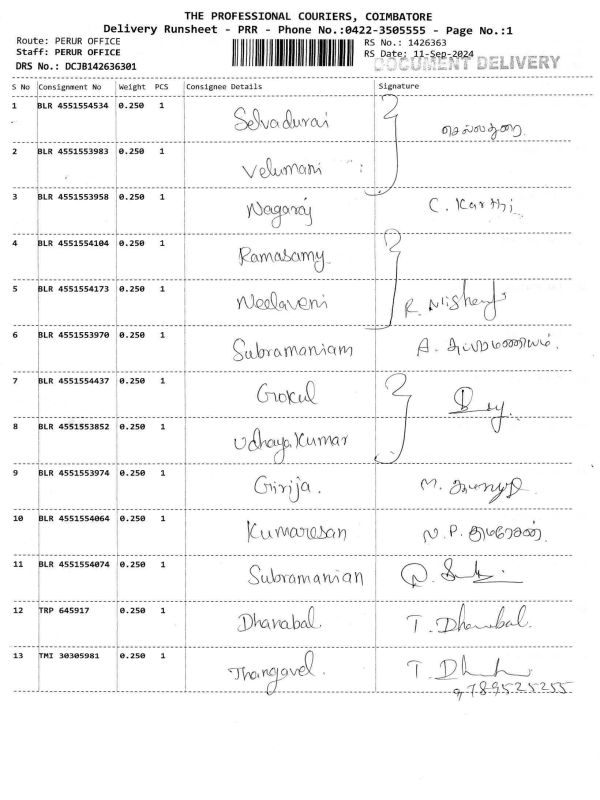 THE PROFESSIONAL COURIERS, COIMBATORE
Delivery Runsheet - PRR - Phone No.:0422-3505555 - Page No.:1
Route: PERUR OFFICE RS No.: 1426363
Staff: PERUR OFFICE RS Date: 11-Sep-2024
DRS No.: DCJB142636301 DOCUMENT DELIVERY
S No Consignment No Weight PCS Consignee Details Signature
1 BLR 4551554534 0.250 1 Selvadurai செல்லதுரை
2 BLR 4551553983 0.250 1 Velumani
3 BLR 4551553958 0.250 1 Nagaraj C. Karthi
4 BLR 4551554104 0.250 1 Ramasamy
5 BLR 4551554173 0.250 1 Neelaveni R.
6 BLR 4551553970 0.250 1 Subramaniam A. சுப்ரமணியம்.
7 BLR 4551554437 0.250 1 Gokul
8 BLR 4551553852 0.250 1 Udhaya Kumar
9 BLR 4551553974 0.250 1 Girija. M.
10 BLR 4551554064 0.250 1 Kumaresan N. P. குமரேசன்.
11 BLR 4551554074 0.250 1 Subramanian
12 TRP 645917 0.250 1 Dhanabal. T. Dhanabal.
13 TMI 30305981 0.250 1 Thangavel. T.
9789525255